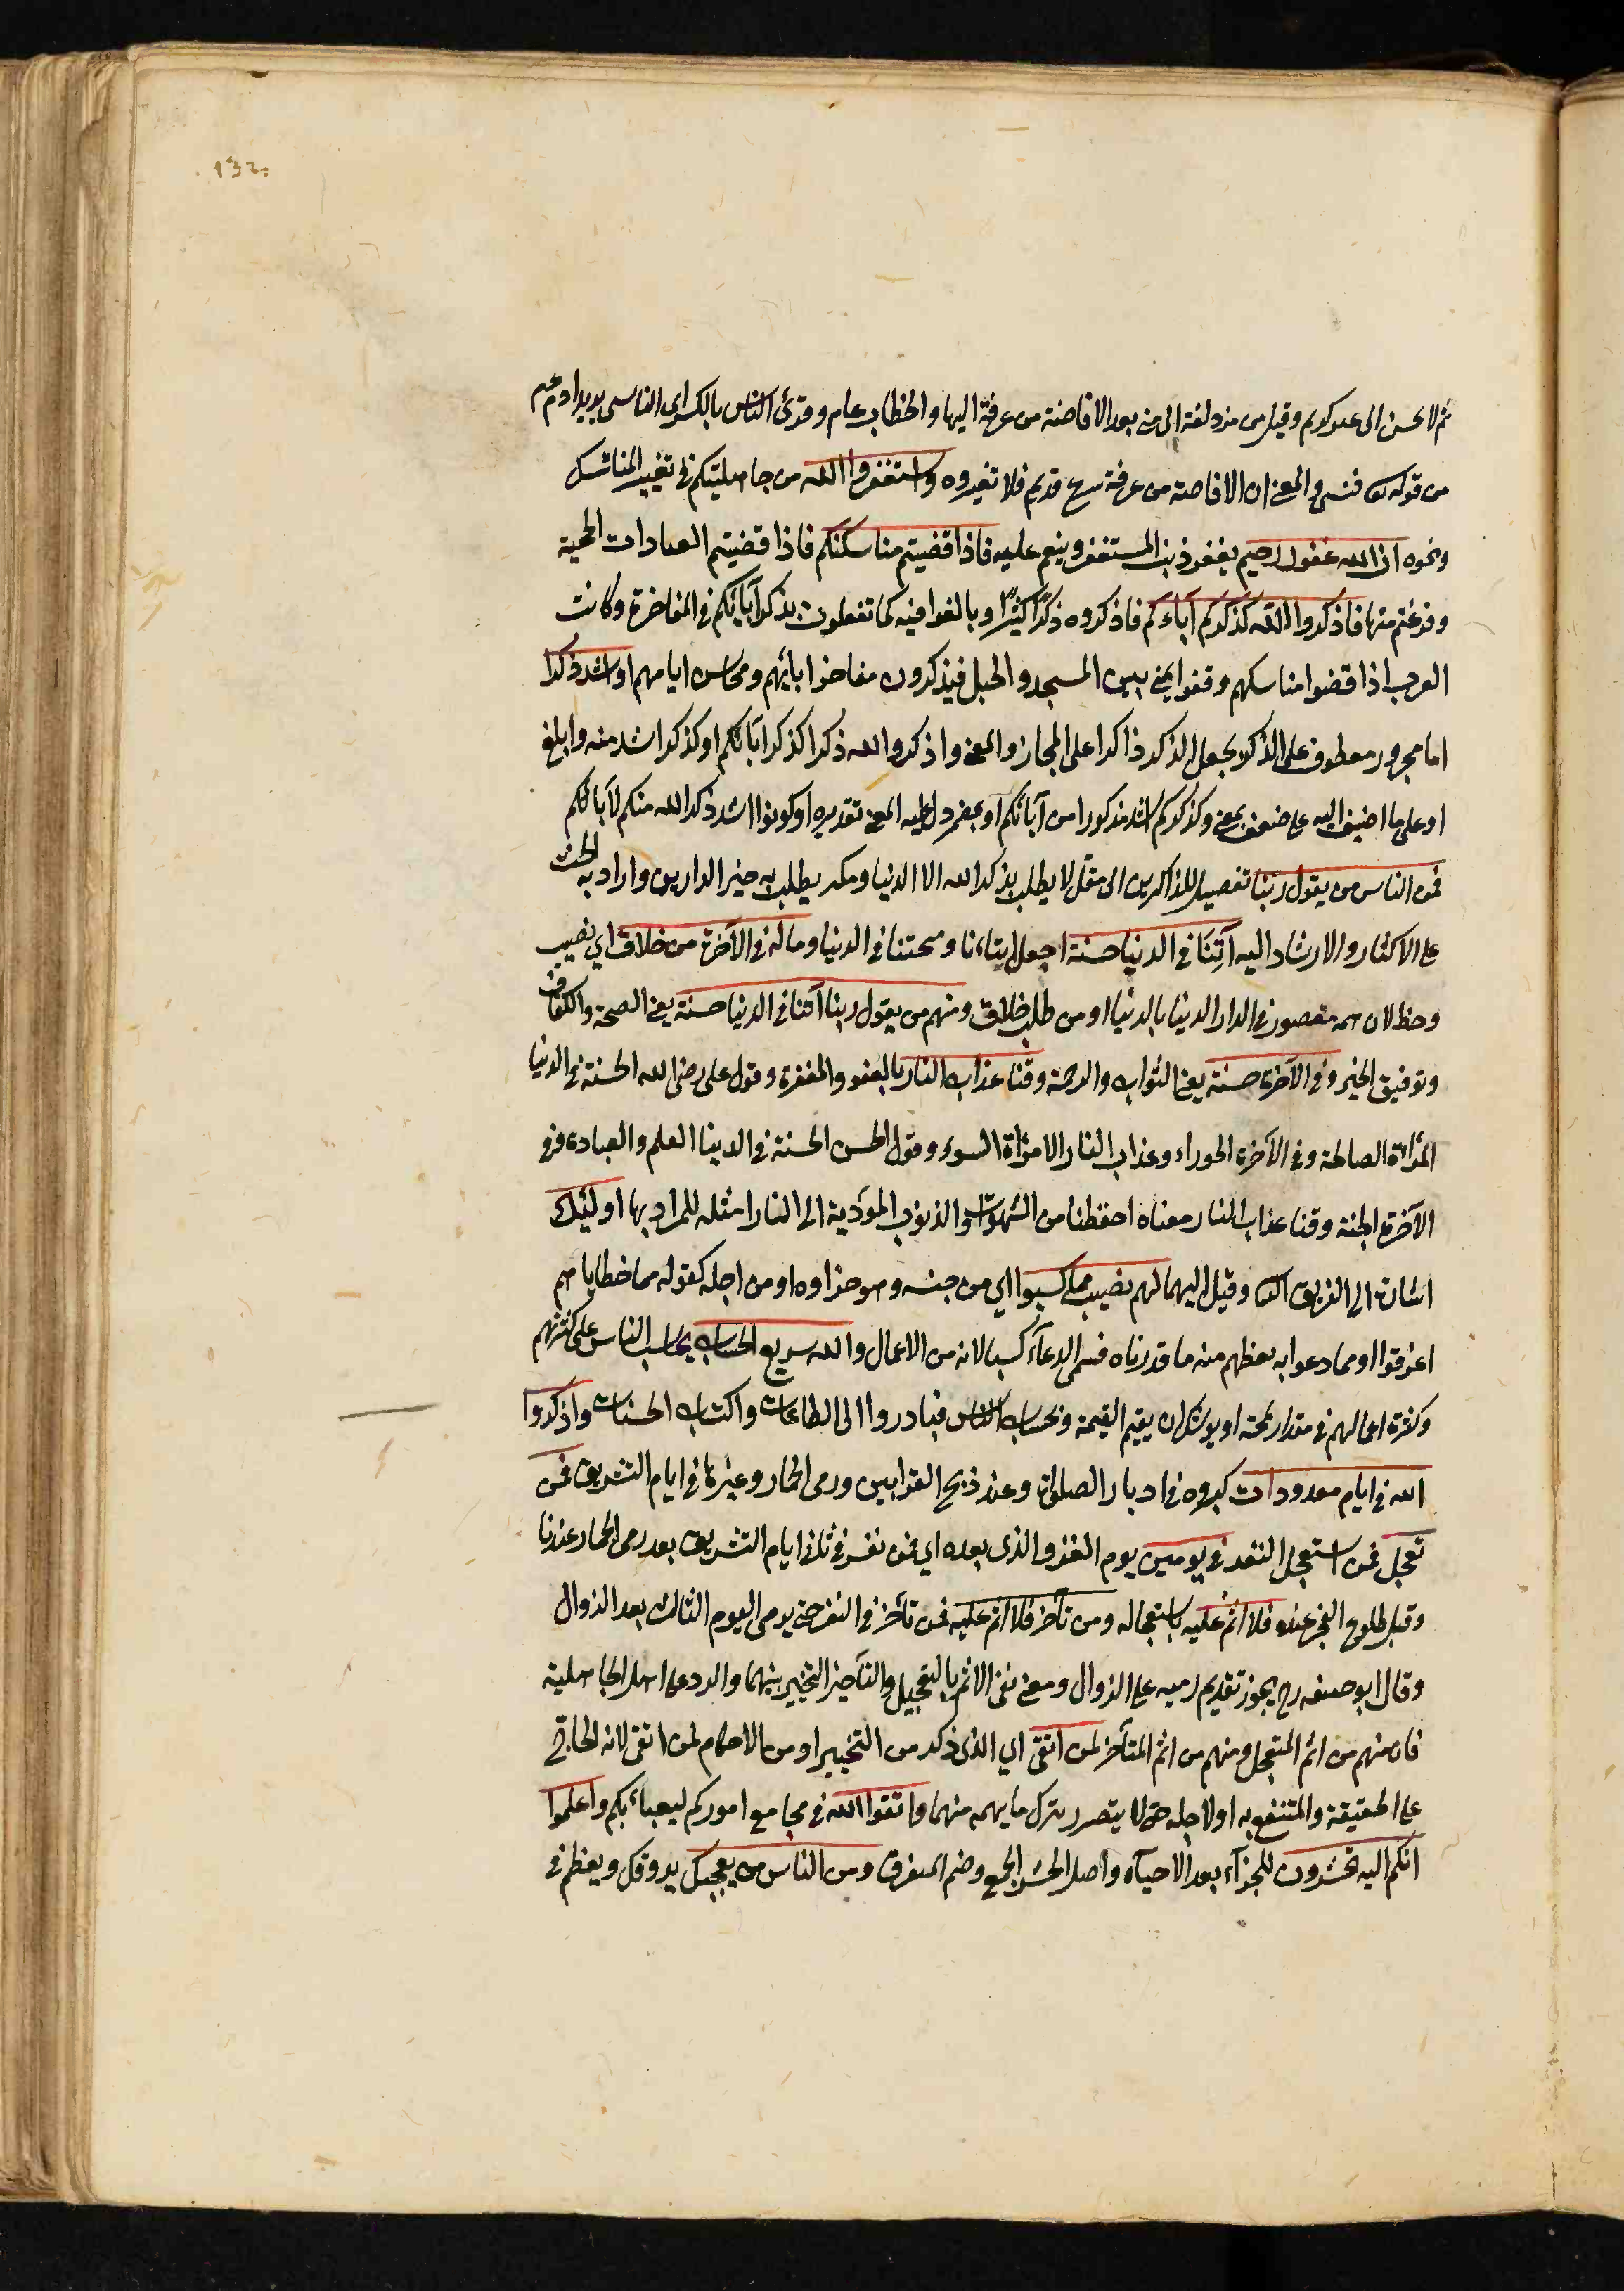 132
ثم لا تحسن الى غير كريم وقيل من مزدلفة الى منى بعد الافاضة من عرفة اليها والخطاب عام وقرئ الناس بالكسر اى الناسى يريد ادم عم
من قوله تعا فنسى والمعنى ان الافاضة من عرفة شرع قديم فلا تغيروه واستغفروا الله من جاهليتكم فى تغيير المناسك
ونحوه ان الله غفور رحيم يغفر ذنب المستغفر وينعم عليه فاذا قضيتم مناسككم فاذا قضيتم العبادات الحجية
وفرغتم منها فاذكروا الله كذكركم آباءكم فاذكروه ذكرًا كثيرًا وبالغوا فيه كما تفعلون بذكر آبائكم فى المفاخرة وكانت
العرب اذا قضوا مناسكهم وقفوا بمنى بين المسجد والجبل فيذكرون مفاخر ابائهم ومحاسن ايامهم او اشد ذكرا
اما مجرور معطوف على الذكر لا بجعل الذكر ذاكرا على المجاز والمعنى واذكروا الله ذكرا كذكر ابائكم او كذكر اشد منه وابلغ
او على ما اضيف اليه على ضعف بمعنى وكذكركم اشد مذكورا من آبائكم او بمضمر دل عليه المعنى تقديره او كونوا اشد ذكر الله منكم لآبائكم
فمن الناس من يقول ربّنا تفصيل للذاكرين الى مقل لا يطلب بذكر الله الا الدنيا ومكثر يطلب به خير الدارين واراد به الحث
على الاكثار والارشاد اليه آتِنَا فى الدنيا حسنة اجعل ايتاءنا ومنحتنا فى الدنيا وما له فى الآخرة من خلاق اى نصيب
وحظ لان همه مقصور فى الدار الدنيا بالدنيا او من طلب خلاق ومنهم من يقول ربنا آتنا فى الدنيا حسنة يعنى الصحة والكفاف
وتوفيق الخير وفى الآخرة حسنة يعنى الثواب والرحمة وقنا عذاب النار بالعفو والمغفرة وقول على رضى الله الحسنة فى الدنيا
المراءة الصالحة وفى الآخرة الحوراء وعذاب النار الامرأة السوء وقول الحسن الحسنة فى الدينا العلم والعبادة وفى
الآخرة الجنة وقنا عذاب النار معناه احفظنا من الشهوات والذنوب المؤدية الى النار امثله للمراد بها اولئك
اشارة الى الفريق الثا وقيل اليهما لهم نصيب مما كسبوا اى من جنسه وهو جزاوه او من اجله كقوله مما خطاياهم
اغرقوا او مما دعوا به نعطهم منه ما قدرناه فسمى الدعاء كسبا لانه من الاعمال والله سريع الحساب يحاسب الناس على كثرتهم
وكثرة اعمالهم فى مقدار لمحة او يوشك ان يقيم القيمة ويحاسب الناس فبادروا الى الطاعات واكتساب الحسنات واذكروا
الله فى ايام معدودات كبروه فى ادبار الصلوات وعند ذبح القرابين ورمى الجمار وغيرها فى ايام التشريق فمن
تعجل فمن استعجل النفر فى يومين يوم القرّ والذى بعده اى فمن نفر فى ثانى ايام التشريق بعد رمى الجمار عندنا
وقبل طلوع الفجر عنده فلا اثم عليه باستعجاله ومن تأخر فلا اثم عليه فمن تأخر فى النفر حتى يرمى اليوم الثالث بعد الزوال
وقال ابو حنيفه رح يجوز تقديم رميه على الزوال ومعنى نفى الاثم بالتعجيل والتأخير التخيير بينهما والرد على اهل الجاهلية
فان منهم من اثم المتعجل ومنهم من اثم المتأخر لمن اتقى اى الذى ذكر من التخيير او من الاحكام لمن اتقى لانه الحاج
على الحقيقة والمنتفع به او لاجله حتى لا يتضرر بترك ما يهمه منهما واتقوا الله فى مجامع اموركم ليعباء بكم واعلموا
انكم اليه تحشرون للجزآء بعد الاحيآء واصل الحشر الجمع وضم المتفرق ومن الناس من يعجبك يروقك ويعظم فى